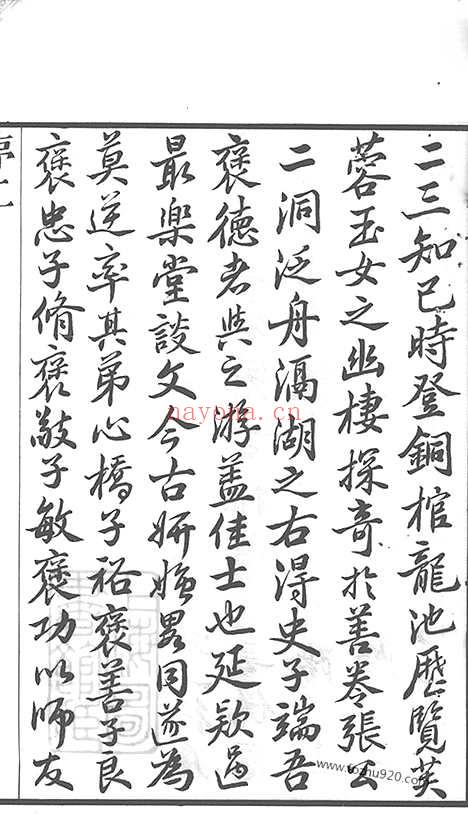 二三知己時登銅棺龍池歷覽芙
蓉玉女之幽棲探奇於善卷張公
二洞泛舟滆湖之右得史子端吾
褒德者與之游蓋佳士也延款過
最樂堂談文今古妍媸畧同遂為
莫逆率其弟心橋子裕褒善子良
褒忠子脩褒敬子敏褒功以師友
序二
nayona.cn
www.fozhu920.com